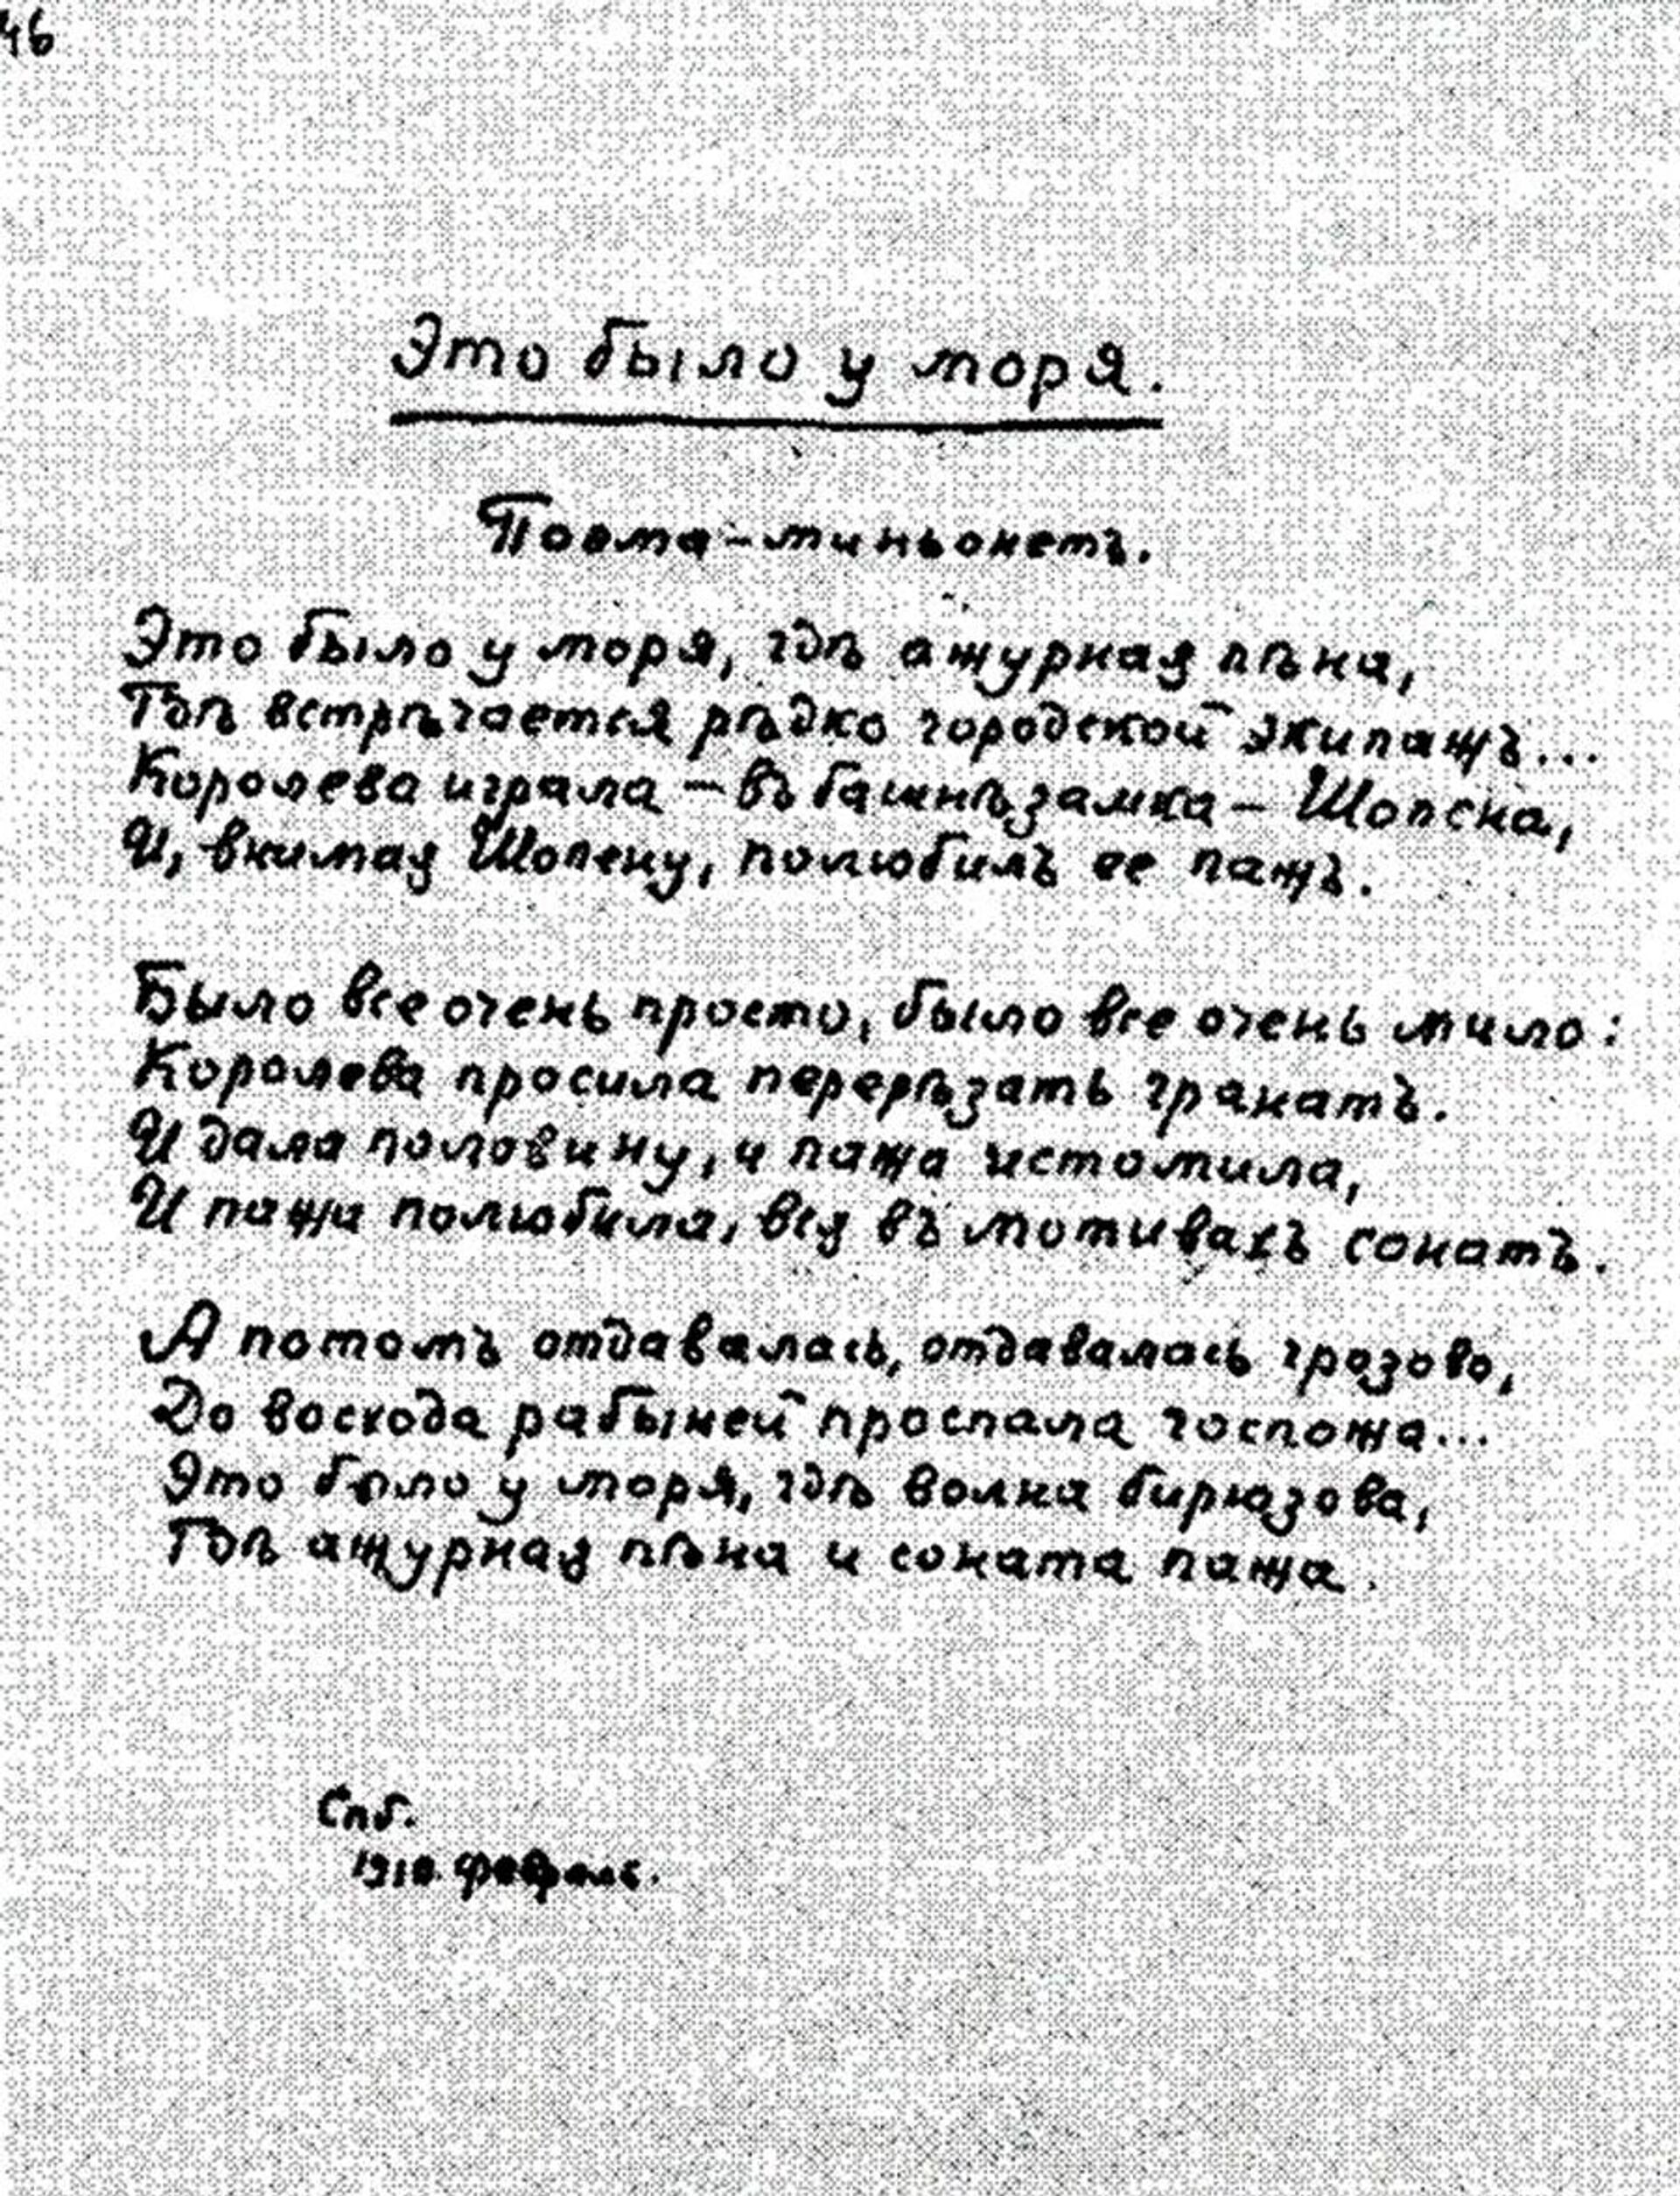 46
Это было у моря.
Поэма-миньонетъ.
Это было у моря, гдѣ ажурная пѣна,
Гдѣ встрѣчается рѣдко городской экипажъ...
Королева играла – въ башнѣ замка – Шопена,
И, внимая Шопену, полюбилъ ее пажъ.
Было все очень просто, было все очень мило:
Королева просила перерѣзать гранатъ.
И дала половину, и пажа истомила,
И пажа полюбила, вся въ мотивахъ сонатъ.
А потомъ отдавалась, отдавалась грозово,
До восхода рабыней проспала госпожа...
Это было у моря, гдѣ волна бирюзова,
Гдѣ ажурная пѣна и соната пажа.
Спб.
1910. февраль.